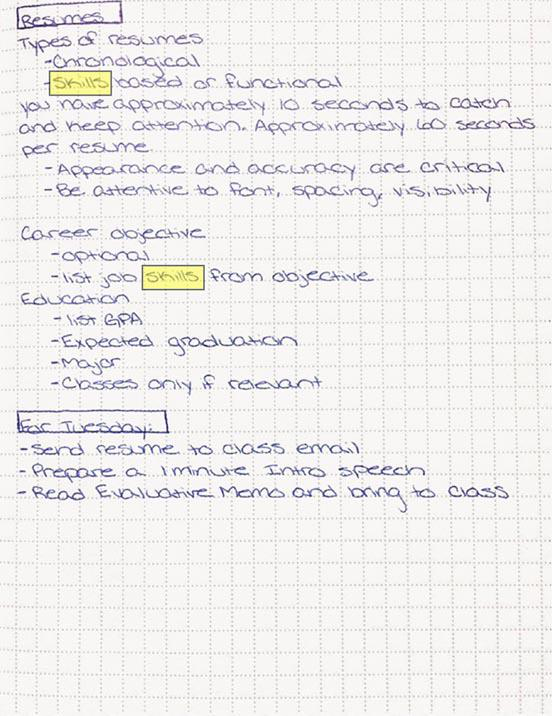 Resumes
Types of resumes
-Chronological
-Skills based or functional
you have approximately 10 seconds to catch
and keep attention. Approximately 60 seconds
per resume
-Appearance and accuracy are critical
-Be attentive to font, spacing, visibility
Career objective
-optional
-list job skills from objective
Education
-list GPA
-Expected graduation
-Major
-Classes only if relevant
For Tuesday:
-Send resume to class email
-Prepare a 1 minute Intro speech
-Read Evaluative Memo and bring to class